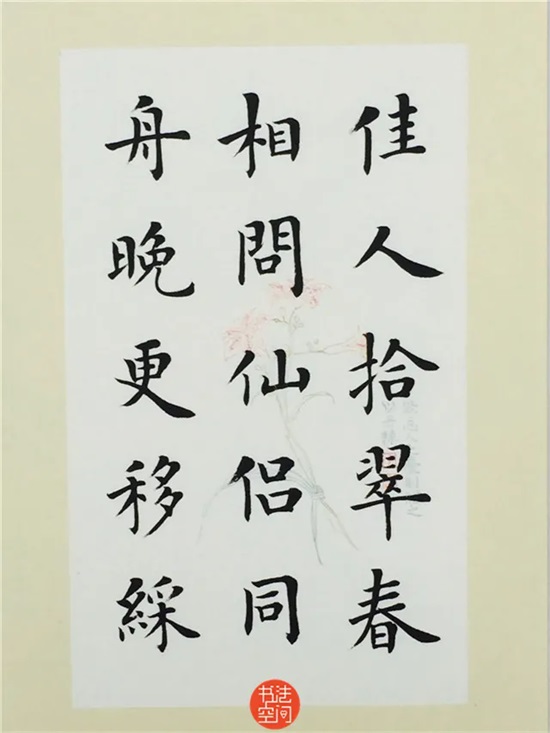 佳人拾翠春
相問仙侣同
舟晚更移綵
书法
空间